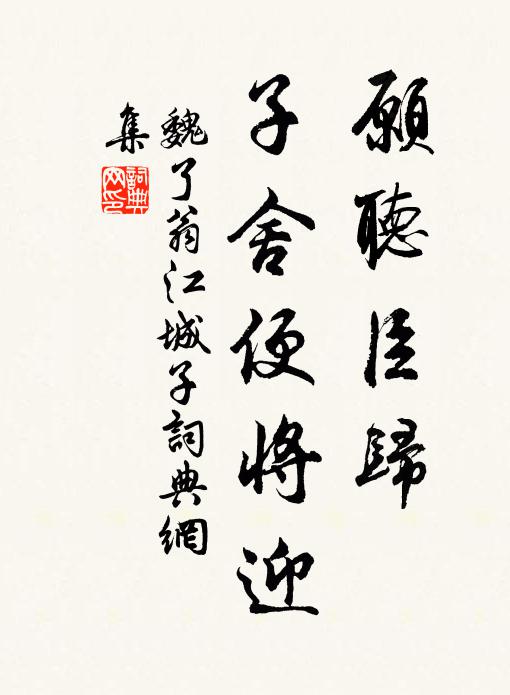 願聽臣歸
子舍便將迎
魏了翁江城子詞典網
集
詞典
网印